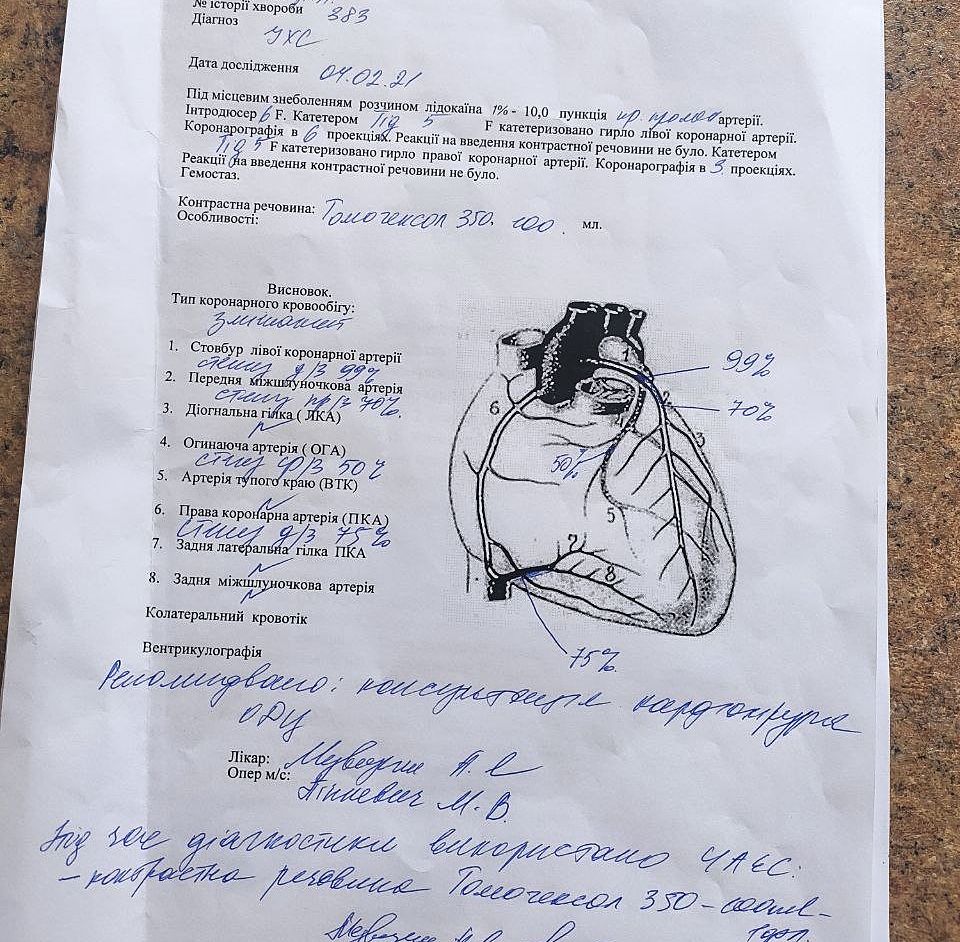 № історії хвороби 383
Діагноз
ІХС
Дата дослідження 04.02.21
Під місцевим знеболенням розчином лідокаїна 1% - 10,0 пункція пр. артерії.
Інтродюсер 6 F. Катетером Tig 5 F катетеризовано гирло лівої коронарної артерії.
Коронарографія в 6 проекціях. Реакції на введення контрастної речовини не було. Катетером
Tig 5 F катетеризовано гирло правої коронарної артерії. Коронарографія в 3 проекціях.
Реакції на введення контрастної речовини не було.
Гемостаз.
Контрастна речовина: Томогексол 350. 100. мл.
Особливості:
Висновок.
Тип коронарного кровообігу:
змішаний
1. Стовбур лівої коронарної артерії
стеноз д/з 99%
2. Передня міжшлуночкова артерія
стеноз пр/з 70%.
3. Діогнальна гілка ( ЛКА)
4. Огинаюча артерія ( ОГА)
стеноз ср/з 50%
5. Артерія тупого краю (ВТК)
6. Права коронарна артерія (ПКА)
стеноз д/з 75%
7. Задня латеральна гілка ПКА
8. Задня міжшлуночкова артерія
Колатеральний кровотік
Вентрикулографія
1
99%
2
70%
3
6
4
50%
5
7
8
75%
Рекомендовано: консультація кардіохірурга
ОДЦ
Лікар:
Опер м/с: М. В.
Під час діагностики використано ЧАЕС:
- контрастна речовина Томогексол 350 - 100мл -